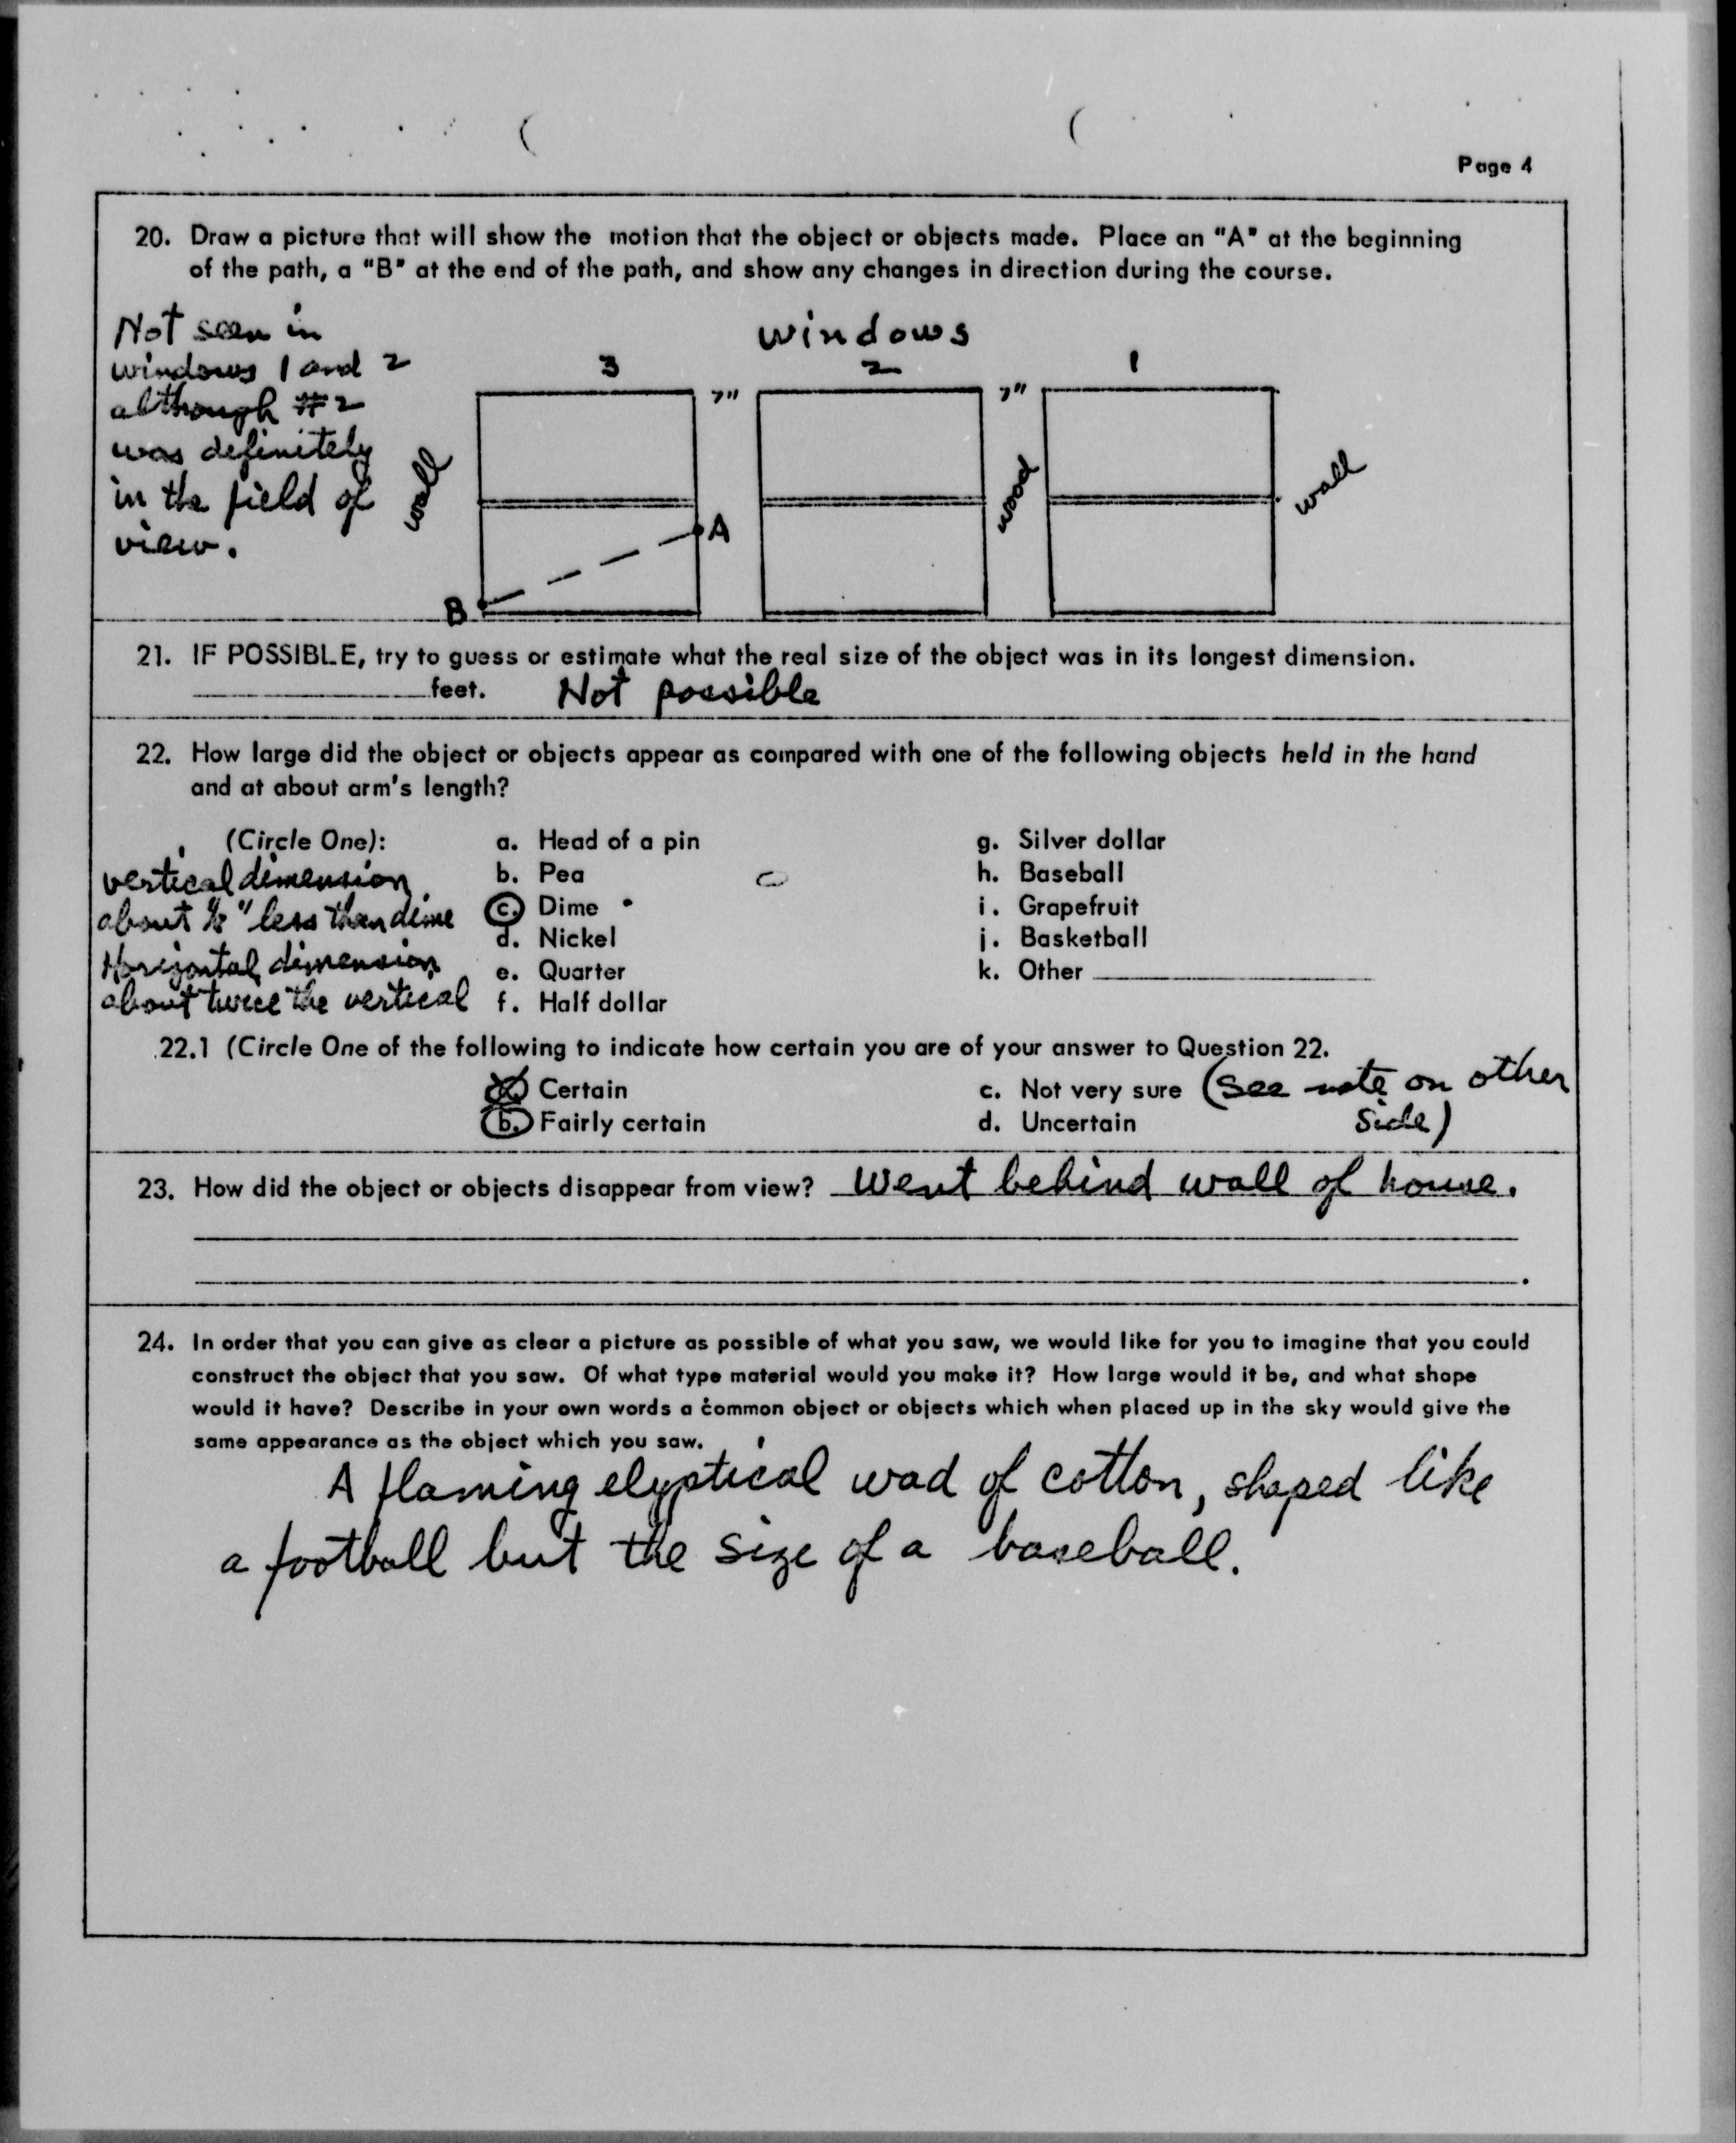 Page 4
20. Draw a picture that will show the motion that the object or objects made. Place an "A" at the beginning
of the path, a "B" at the end of the path, and show any changes in direction during the course.
Not seen in
windows 1 and 2
although #2
was definitely
in the field of
view.
windows
3 2 1
7" 7"
wall wood wall
A
B
21. IF POSSIBLE, try to guess or estimate what the real size of the object was in its longest dimension.
feet. Not possible
22. How large did the object or objects appear as compared with one of the following objects held in the hand
and at about arm's length?
(Circle One): a. Head of a pin g. Silver dollar
vertical dimension b. Pea h. Baseball
about 1/8" less than dime c. Dime i. Grapefruit
d. Nickel j. Basketball
Horizontal dimension e. Quarter k. Other
about twice the vertical f. Half dollar
22.1 (Circle One of the following to indicate how certain you are of your answer to Question 22.
Certain c. Not very sure (see note on other
b. Fairly certain d. Uncertain side)
23. How did the object or objects disappear from view? Went behind wall of house.
24. In order that you can give as clear a picture as possible of what you saw, we would like for you to imagine that you could
construct the object that you saw. Of what type material would you make it? How large would it be, and what shape
would it have? Describe in your own words a common object or objects which when placed up in the sky would give the
same appearance as the object which you saw.
A flaming elyptical wad of cotton, shaped like
a football but the size of a baseball.